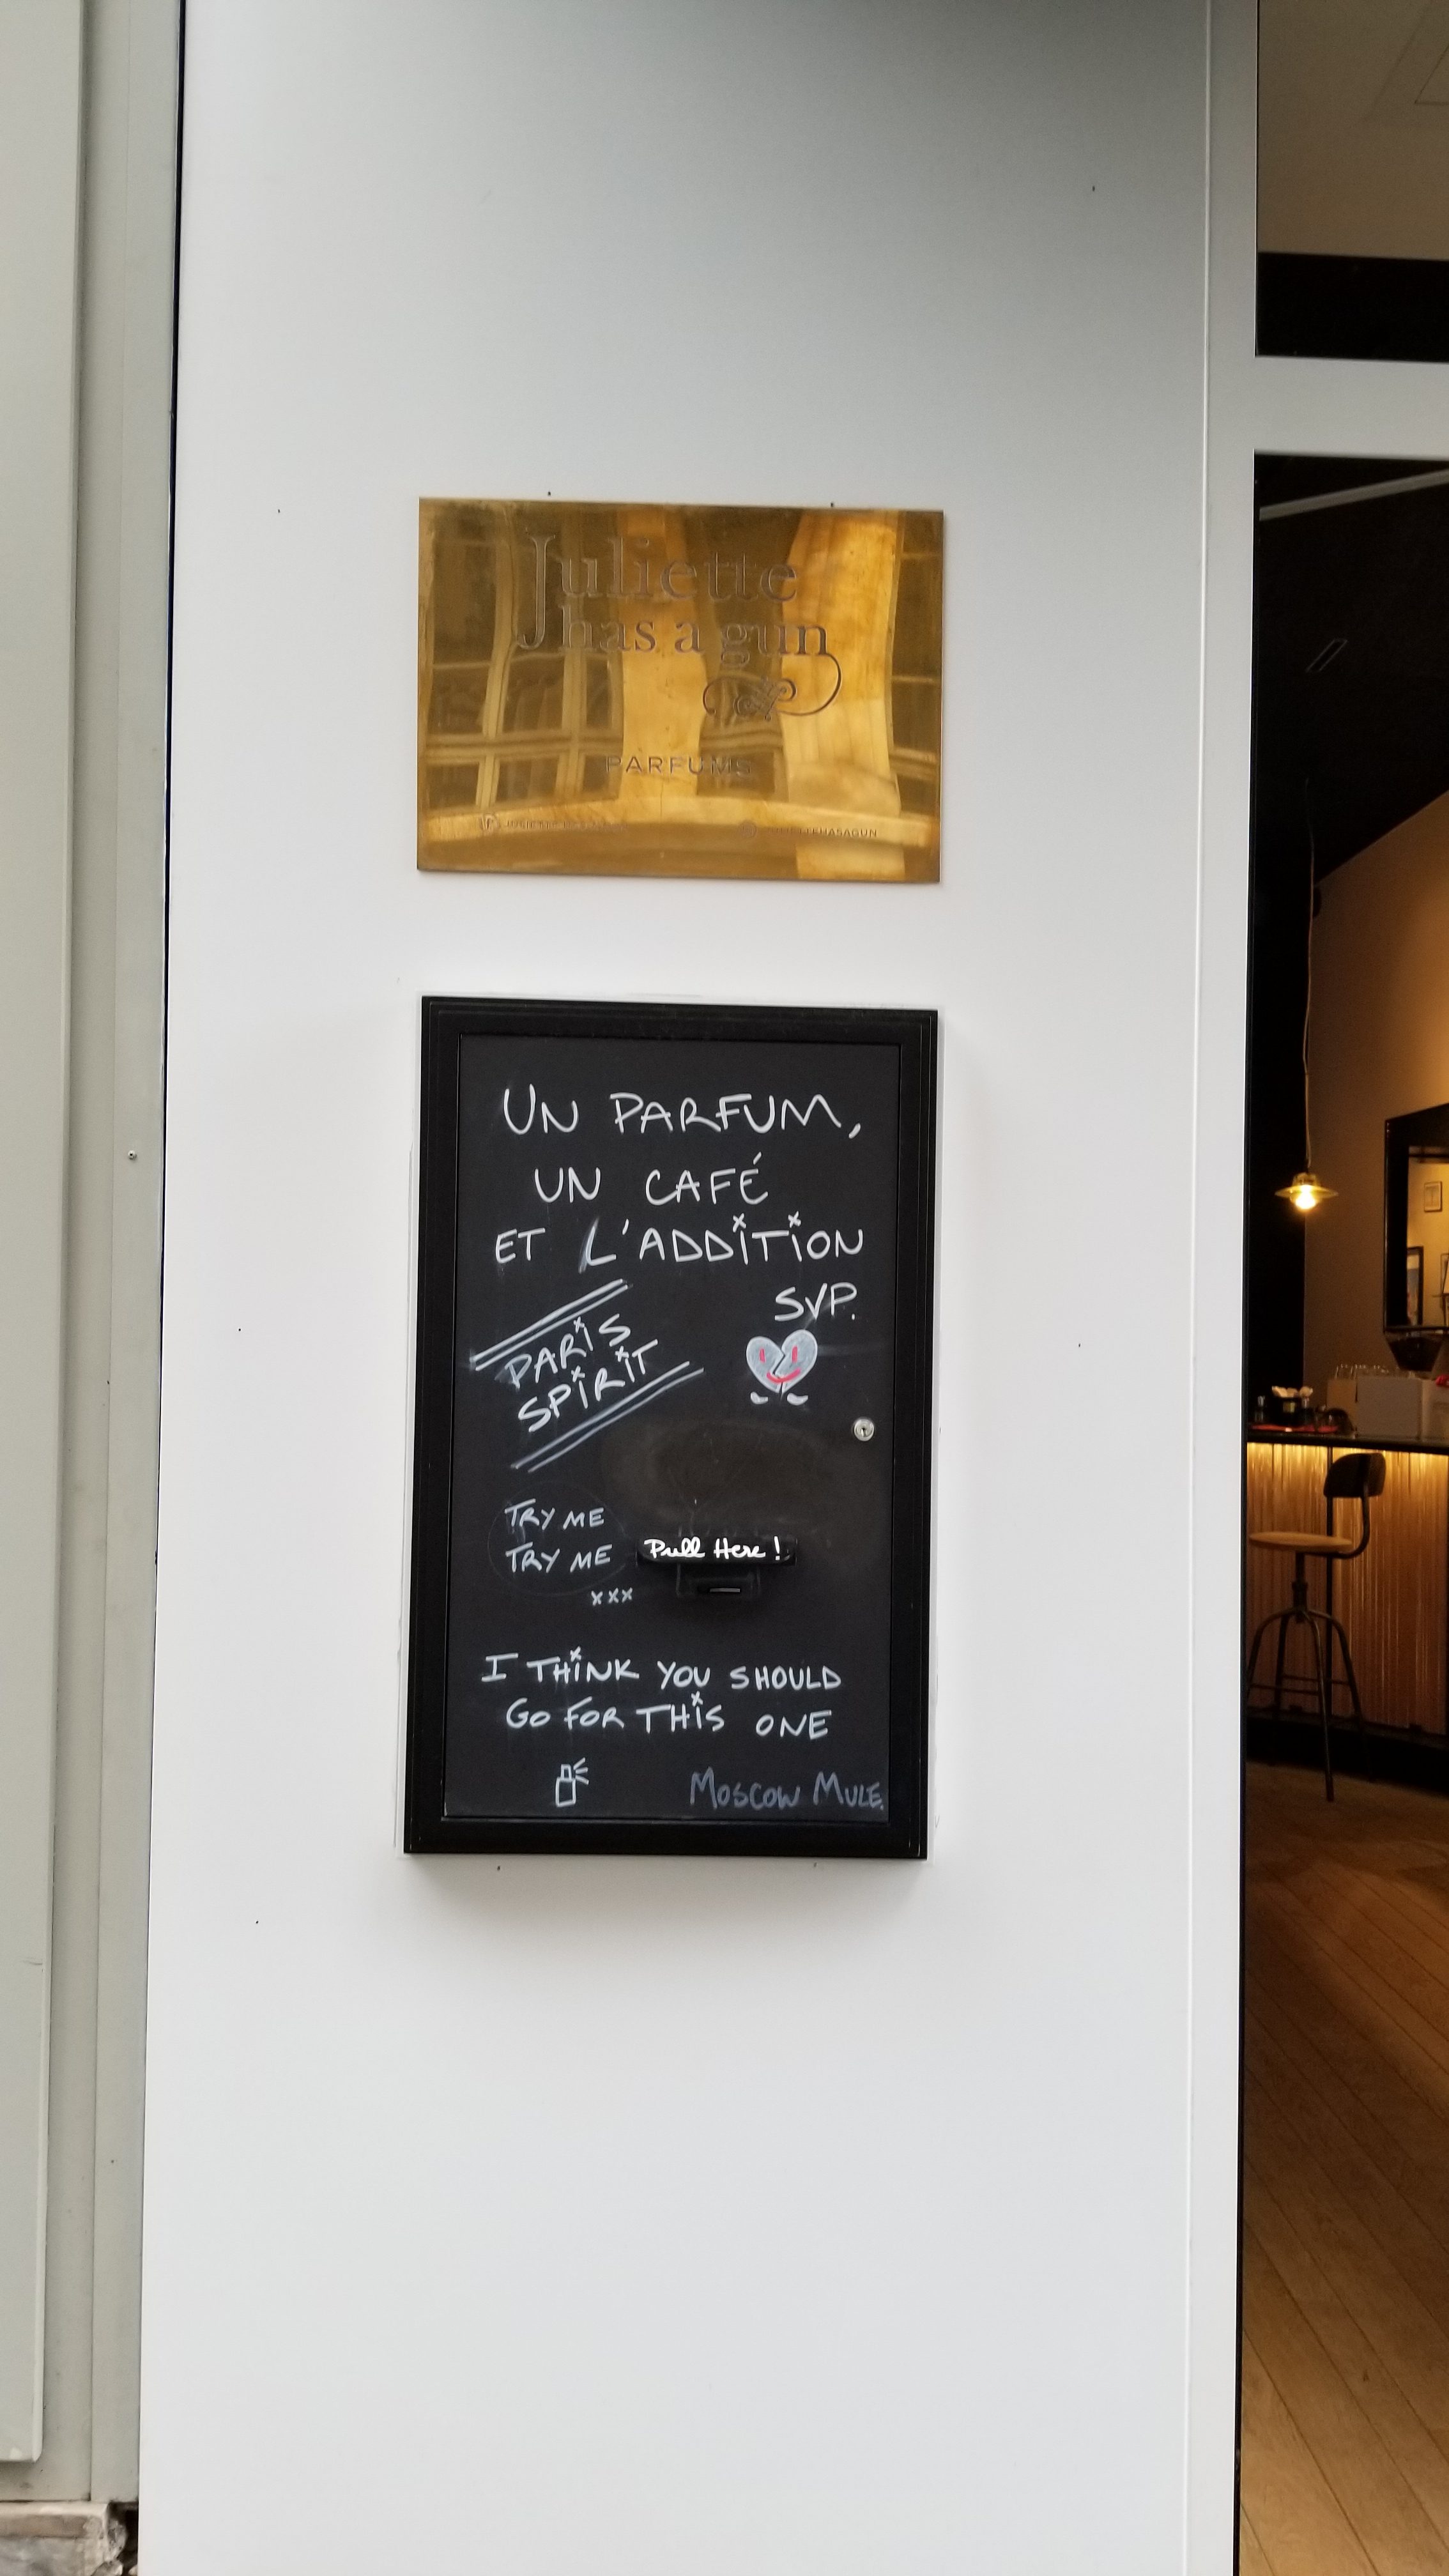 Juliette
has a gun
PARFUMS
JULIETTEHASAGUN
UN PARFUM,
UN CAFÉ
ET L'ADDITION
SVP.
PARIS
SPIRIT
TRY ME
TRY ME
xxx
Pull Here !
I THINK YOU SHOULD
GO FOR THIS ONE
MOSCOW MULE.